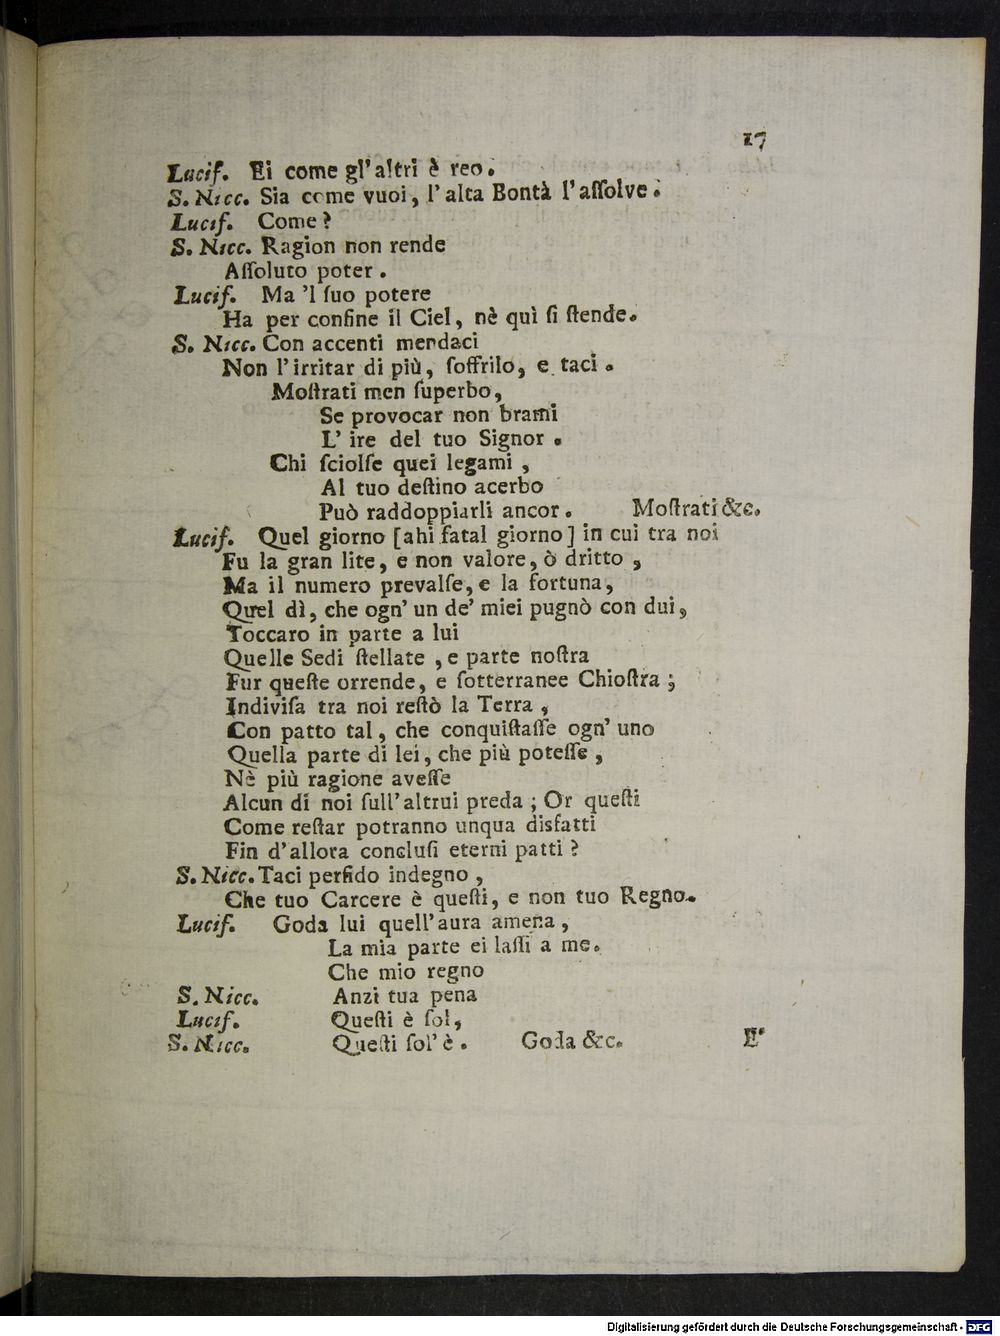 17
Lucif. Ei come gl'altri è reo.
S. Nicc. Sia come vuoi, l'alta Bontà l'aſſolve.
Lucif. Come?
S. Nicc. Ragion non rende
Aſſoluto poter.
Lucif. Ma 'l ſuo potere
Ha per confine il Ciel, nè quì ſi ſtende.
S. Nicc. Con accenti merdaci
Non l'irritar di più, ſoffrilo, e taci.
Moſtrati men ſuperbo,
Se provocar non brami
L' ire del tuo Signor.
Chi ſciolſe quei legami,
Al tuo deſtino acerbo
Può raddoppiarli ancor. Moſtrati &c.
Lucif. Quel giorno [ahi fatal giorno] in cui tra noi
Fu la gran lite, e non valore, ò dritto,
Ma il numero prevalſe, e la fortuna,
Quel dì, che ogn' un de' miei pugnò con dui,
Toccaro in parte a lui
Quelle Sedi ſtellate, e parte noſtra
Fur queſte orrende, e ſotterranee Chioſtra;
Indiviſa tra noi reſtò la Terra,
Con patto tal, che conquiſtaſſe ogn' uno
Quella parte di lei, che più poteſſe,
Nè più ragione aveſſe
Alcun di noi ſull'altrui preda; Or queſti
Come reſtar potranno unqua disfatti
Fin d'allora concluſi eterni patti?
S. Nicc. Taci perfido indegno,
Che tuo Carcere è queſti, e non tuo Regno.
Lucif. Goda lui quell'aura amena,
La mia parte ei laſſi a me.
Che mio regno
S. Nicc. Anzi tua pena
Lucif. Queſti è ſol,
S. Nicc. Queſti ſol' è. Goda &c. E'
Digitalisierung gefördert durch die Deutsche Forschungsgemeinschaft - DFG